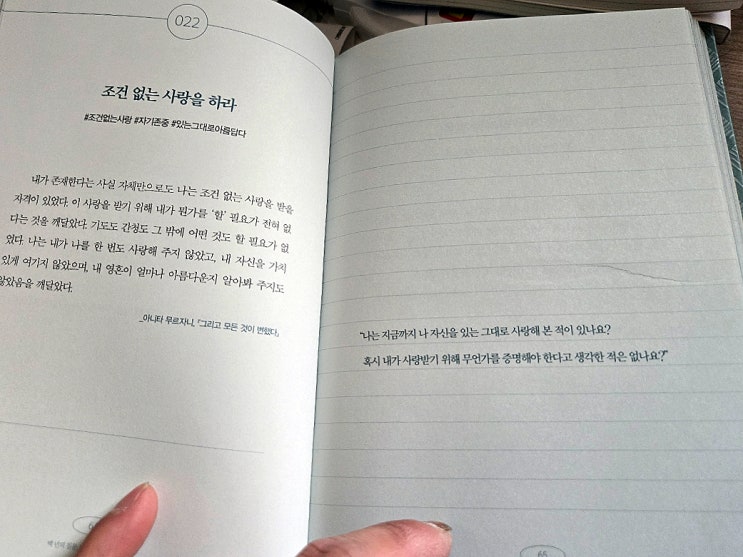 022
조건 없는 사랑을 하라
#조건없는사랑 #자기존중 #있는그대로아름답다
내가 존재한다는 사실 자체만으로도 나는 조건 없는 사랑을 받을
자격이 있었다. 이 사랑을 받기 위해 내가 뭔가를 '할' 필요가 전혀 없
다는 것을 깨달았다. 기도도 간청도 그 밖에 어떤 것도 할 필요가 없
었다. 나는 내가 나를 한 번도 사랑해 주지 않았고, 내 자신을 가치
있게 여기지 않았으며, 내 영혼이 얼마나 아름다운지 알아봐 주지도
않았음을 깨달았다.
_아니타 무르자니, 『그리고 모든 것이 변했다』
"나는 지금까지 나 자신을 있는 그대로 사랑해 본 적이 있나요?
혹시 내가 사랑받기 위해 무언가를 증명해야 한다고 생각한 적은 없나요?"
65